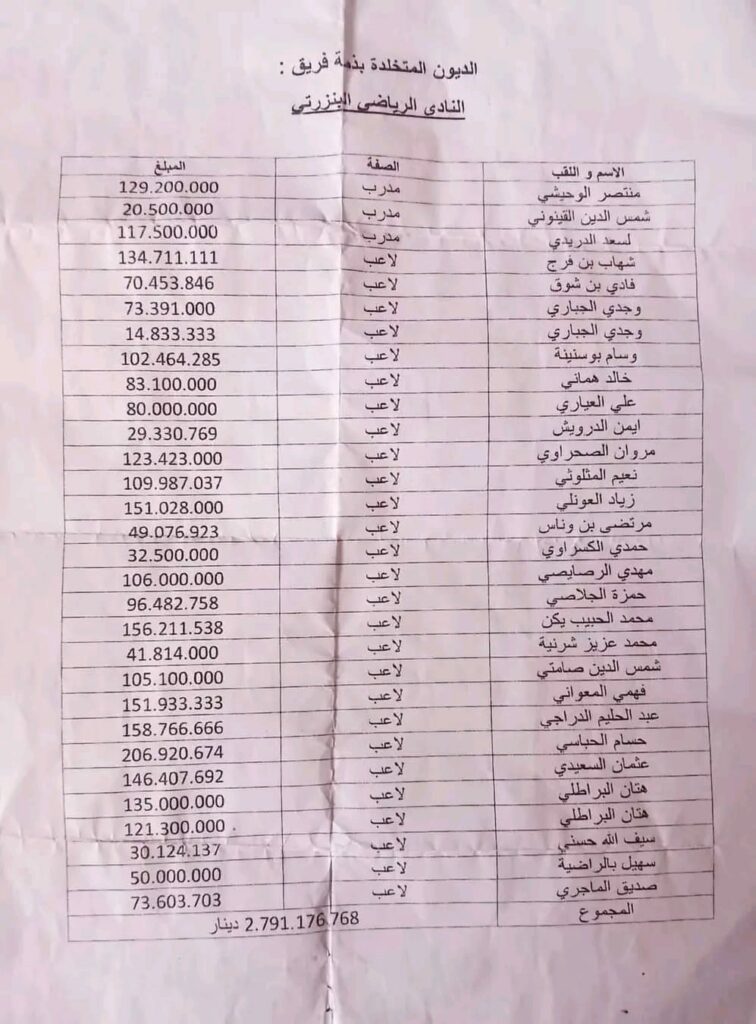 الديون المتخلدة بذمة فريق :
النادي الرياضي البنزرتي
الاسم و اللقب الصفة المبلغ
منتصر الوحيشي مدرب 129.200.000
شمس الدين القينوني مدرب 20.500.000
لسعد الدريدي مدرب 117.500.000
شهاب بن فرج لاعب 134.711.111
فادي بن شوق لاعب 70.453.846
وجدي الجباري لاعب 73.391.000
وجدي الجباري لاعب 14.833.333
وسام بوسنينة لاعب 102.464.285
خالد هماني لاعب 83.100.000
علي العياري لاعب 80.000.000
ايمن الدرويش لاعب 29.330.769
مروان الصحراوي لاعب 123.423.000
نعيم المثلوثي لاعب 109.987.037
زياد العونلي لاعب 151.028.000
مرتضى بن وناس لاعب 49.076.923
حمدي الكسراوي لاعب 32.500.000
مهدي الرصايصي لاعب 106.000.000
حمزة الجلاصي لاعب 96.482.758
محمد الحبيب يكن لاعب 156.211.538
محمد عزيز شرنية لاعب 41.814.000
شمس الدين صامتي لاعب 105.100.000
فهمي المعواني لاعب 151.933.333
عبد الحليم الدراجي لاعب 158.766.666
حسام الحباسي لاعب 206.920.674
عثمان السعيدي لاعب 146.407.692
هتان البراطلي لاعب 135.000.000
هتان البراطلي لاعب 121.300.000
سيف الله حسني لاعب 30.124.137
سهيل بالراضية لاعب 50.000.000
صديق الماجري لاعب 73.603.703
المجموع 2.791.176.768 دينار